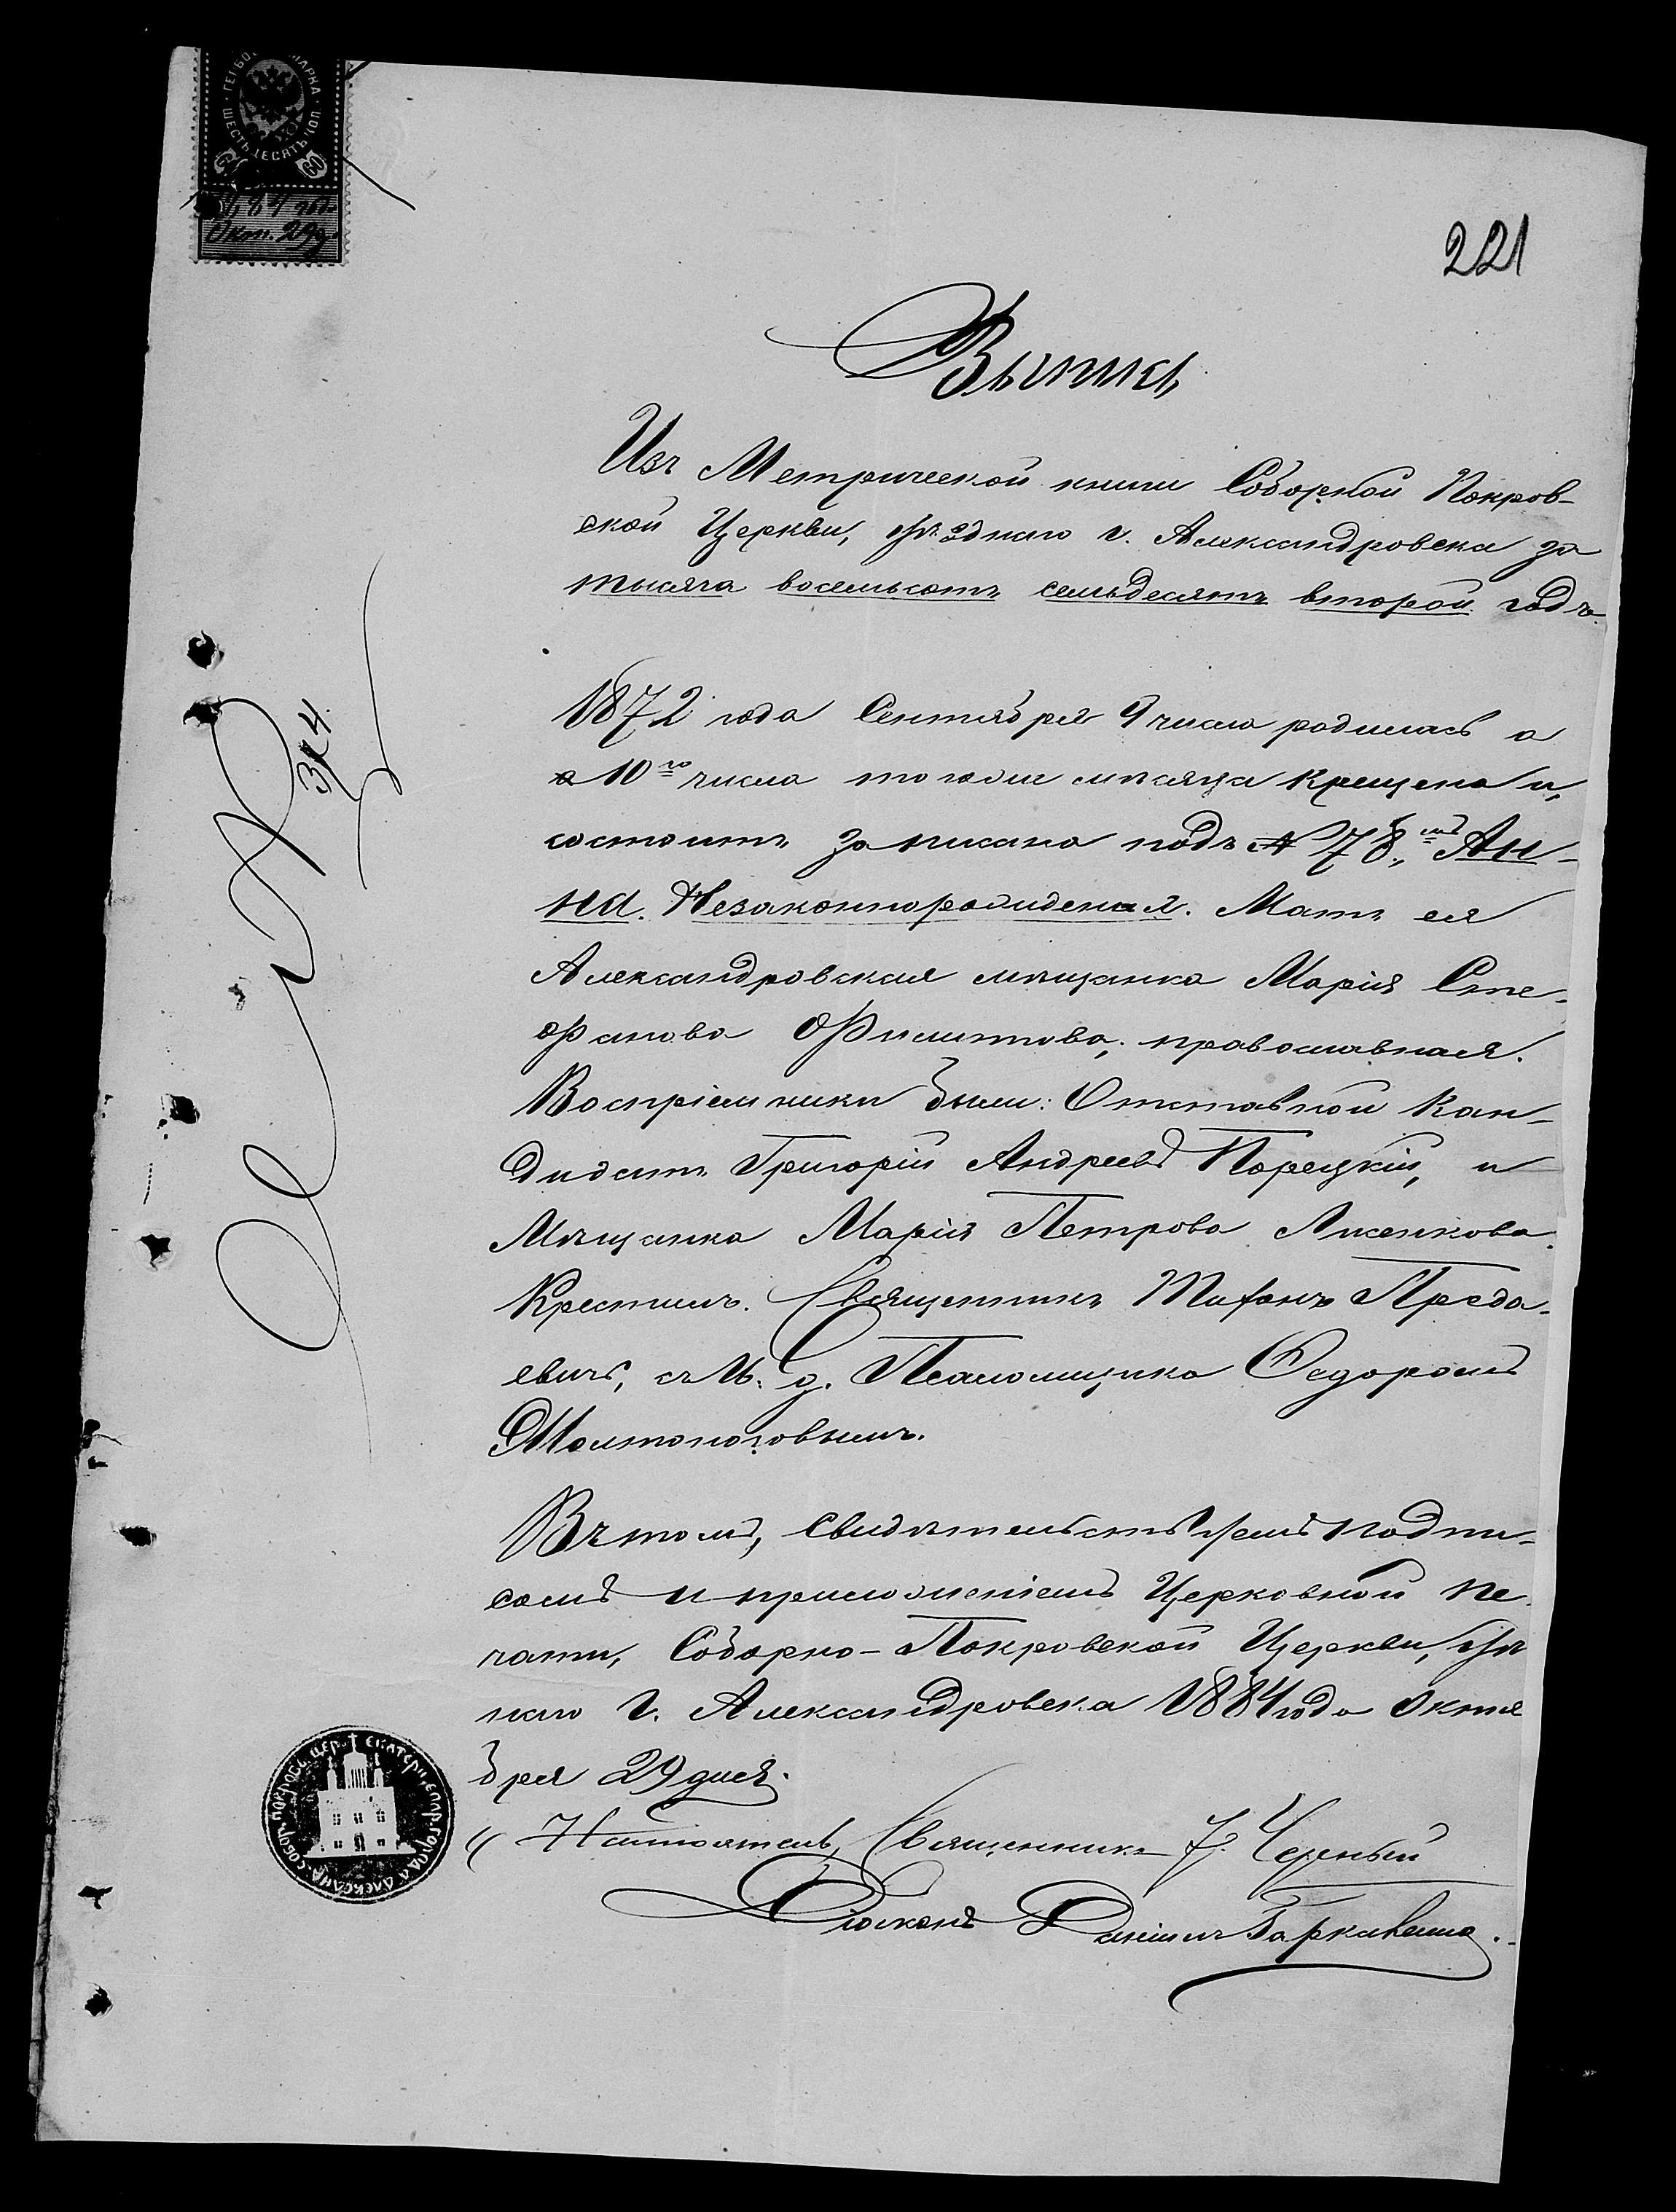 ГЕРБОВАЯ МАРКА
ШЕСТЬДЕСЯТЪ КОП.
60
Окт. 29 д.
221
Выпись
Изъ Метрической книги Соборной Покров-
ской Церкви, уѣзднаго г. Александровска за
тысяча восемьсотъ семьдесятъ второй годъ.
1872 года Сентября 9 числа родилась а
а 10го числа того же мѣсяца крещена и,
состоитъ записана подъ № 78, Ан-
на. Незаконнорожденая. Мать ея
Александровская мѣщанка Марія Сте-
фанова Филиппова, православная.
Воспріемники были: Отставной Кан-
дидатъ Григорій Андреевъ Порецкій, и
Мѣщанка Марія Петрова Лисенкова.
Крестилъ. Священникъ Тифонъ Преда-
евичъ, съ И. д. Псаломщика Федоромъ
Желтоноговымъ.
Въ томъ, свидѣтельствуемъ подпи-
сомъ и приложеніемъ Церковной пе-
чати, Соборно-Покровской Церкви, уѣзд
наго г. Александровска 1884 года Октя
бря 29 дня.
Настоятель, Священникъ Черный
Діаконъ Даніилъ Гаркавенко.
314
СОБОР. ПОКРОВС. ЦЕР. ЕКАТЕРИ. ЕПАР. ГОРОДА АЛЕКСАНД.